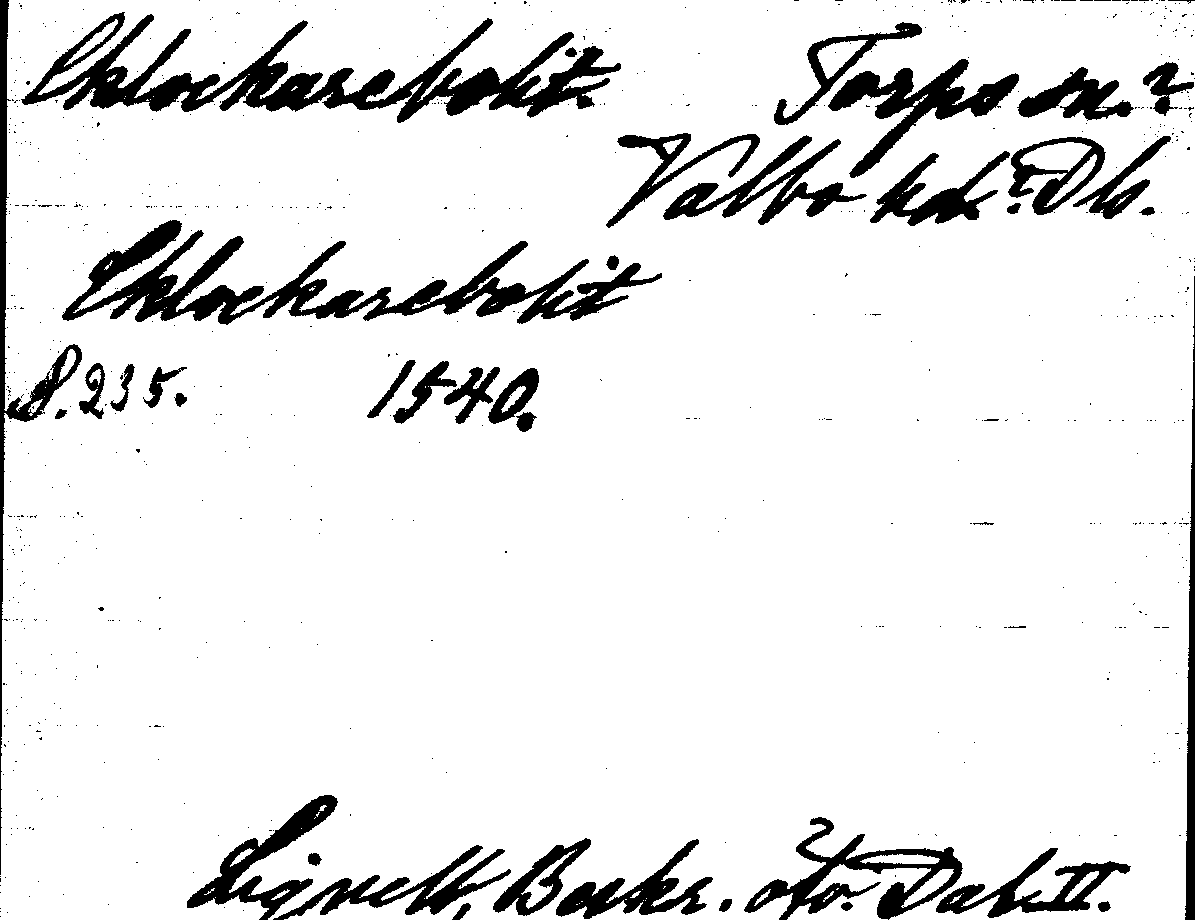 Eklockarebolit. Torps sn.?
Valbo hd.? Dls.
Eklockarebolit
S. 235. 1540.
Lignell, Beskr. öfv. Dal. II.